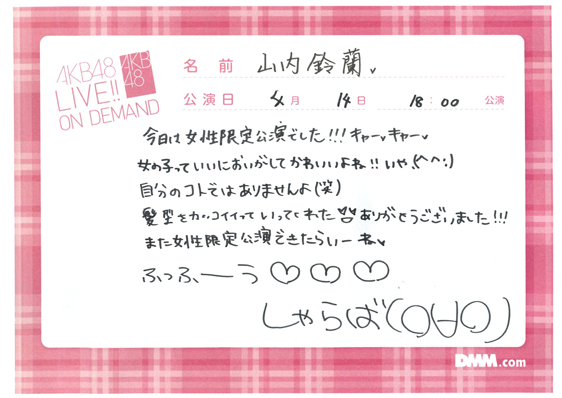 AKB48
LIVE!!
ON DEMAND
AKB
48
名前 山内鈴蘭♥
公演日 4月 14日 18:00 公演
今日は女性限定公演でした!!!キャー♥キャー♥
女の子っていいにおいがしてかわいいよね!!いや、(^^;)
自分のコトではありませんよ(笑)
髪型をカッコイイっていってくれた ありがとうございました!!!
また女性限定公演できたらいーね♥
ふっふーう♡♡♡
しゃらば(O∀O)
DMM.com